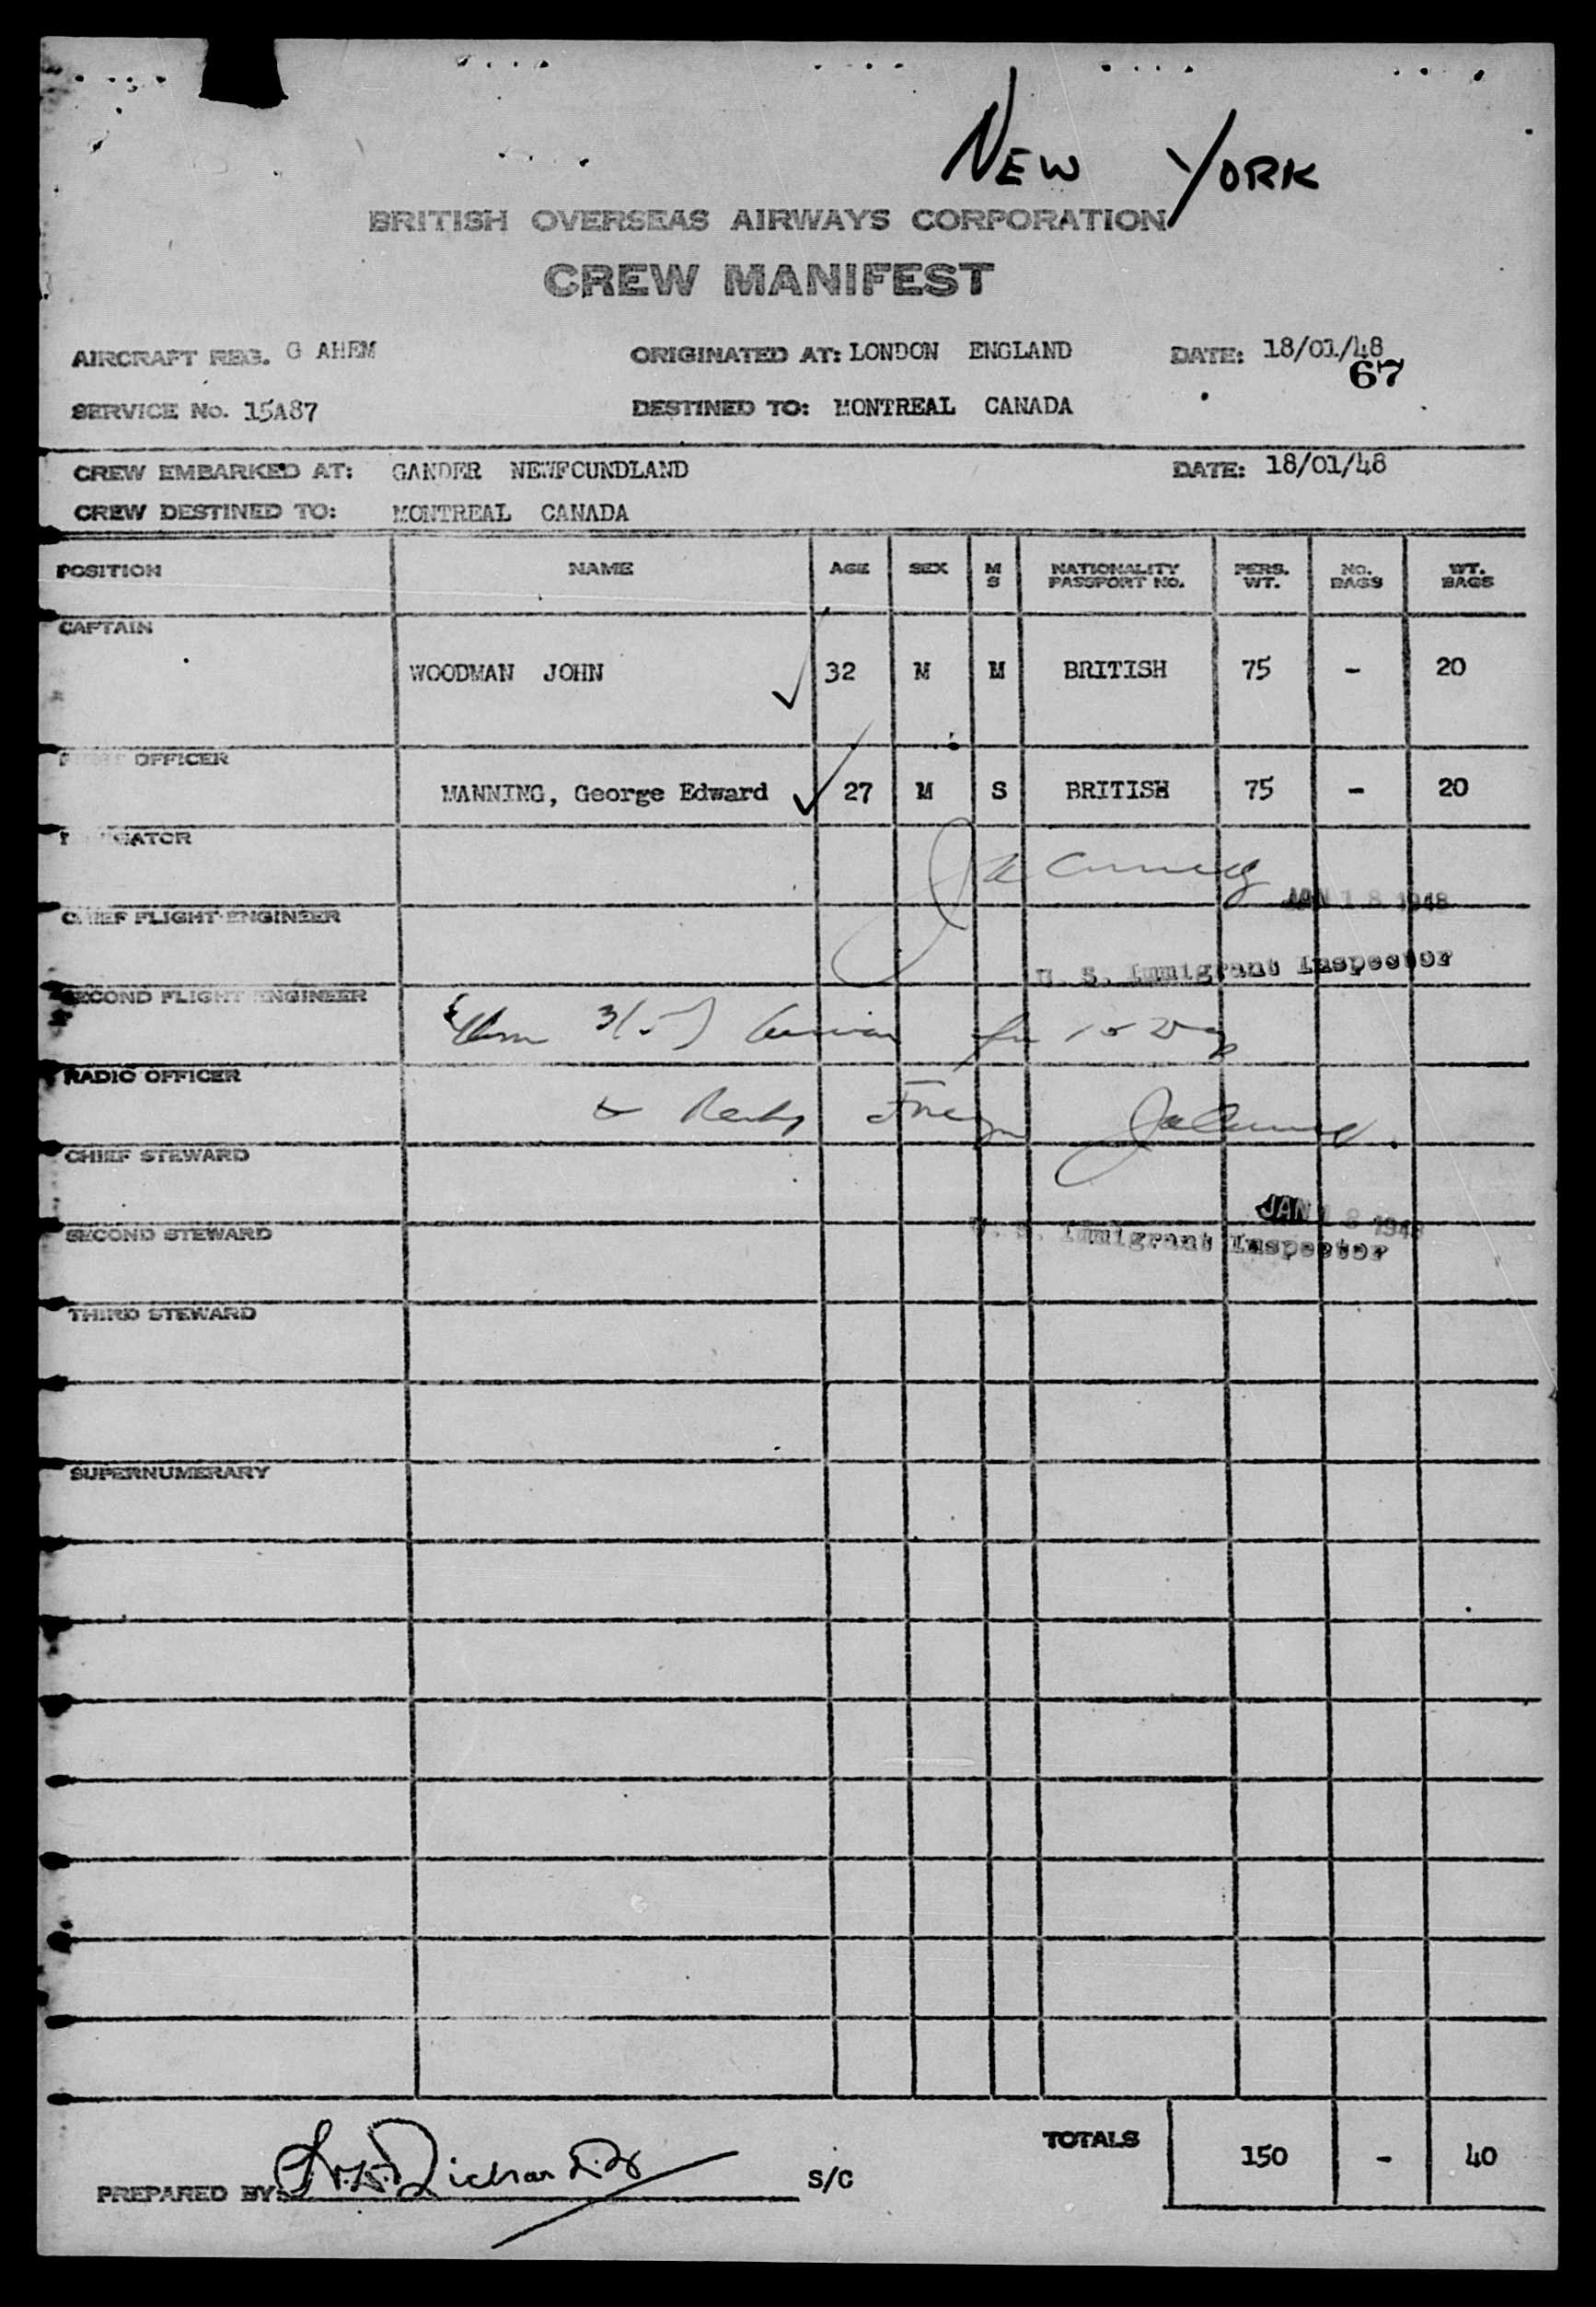 NEW YORK
BRITISH OVERSEAS AIRWAYS CORPORATION
CREW MANIFEST
AIRCRAFT REG. G AHEM ORIGINATED AT: LONDON ENGLAND DATE: 18/01/48
67
SERVICE No. 15A87 DESTINED TO: MONTREAL CANADA
CREW EMBARKED AT: GANDER NEWFOUNDLAND DATE: 18/01/48
CREW DESTINED TO: MONTREAL CANADA
POSITION NAME AGE SEX M S NATIONALITY PASSPORT NO. PERS. WT. NO. BAGS WT. BAGS
CAPTAIN
WOODMAN JOHN 32 M M BRITISH 75 - 20
OFFICER
MANNING, George Edward 27 M S BRITISH 75 - 20
JAN 18 1948
CHIEF FLIGHT ENGINEER
U. S. Immigrant Inspector
SECOND FLIGHT ENGINEER
3(5)
RADIO OFFICER
CHIEF STEWARD
JAN 18 1948
SECOND STEWARD
U. S. Immigrant Inspector
THIRD STEWARD
SUPERNUMERARY
TOTALS 150 - 40
PREPARED BY: S/C